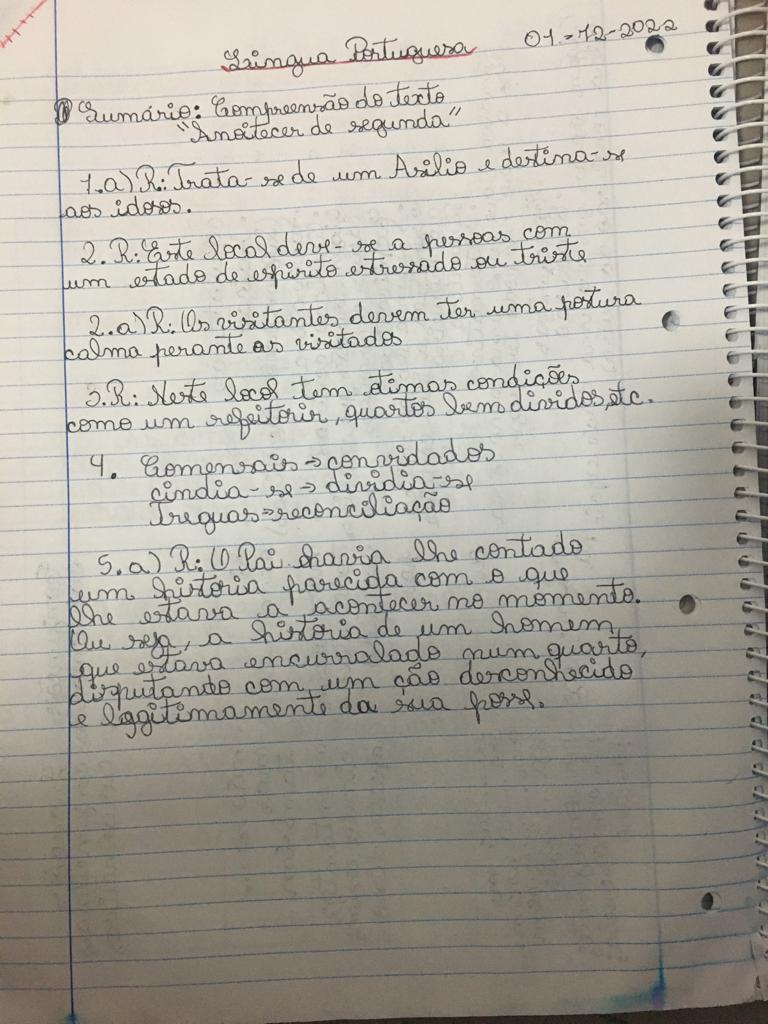 Língua Portuguesa
01-12-2022
Sumário: Compreensão do texto
"Anoitecer de segunda"
1.a) R: Trata-se de um Asilio e destina-se
aos idosos.
2. R: Este local deve-se a pessoas com
um estado de espirito estressado ou triste
2.a) R: Os visitantes devem ter uma postura
calma perante os visitados
3. R: Neste local tem otimas condições
como um refeitorir, quartos bem divididos, etc.
4. Comensais → convidados
cindia-se → dividia-se
Treguas → reconciliação
5. a) R: O Pai havia lhe contado
um história parecida com o que
lhe estava a acontecer no momento.
Ou seja, a história de um homem
que estava encurralado num quarto,
disputando com um cão desconhecido
e leggitimamente da sua posse.